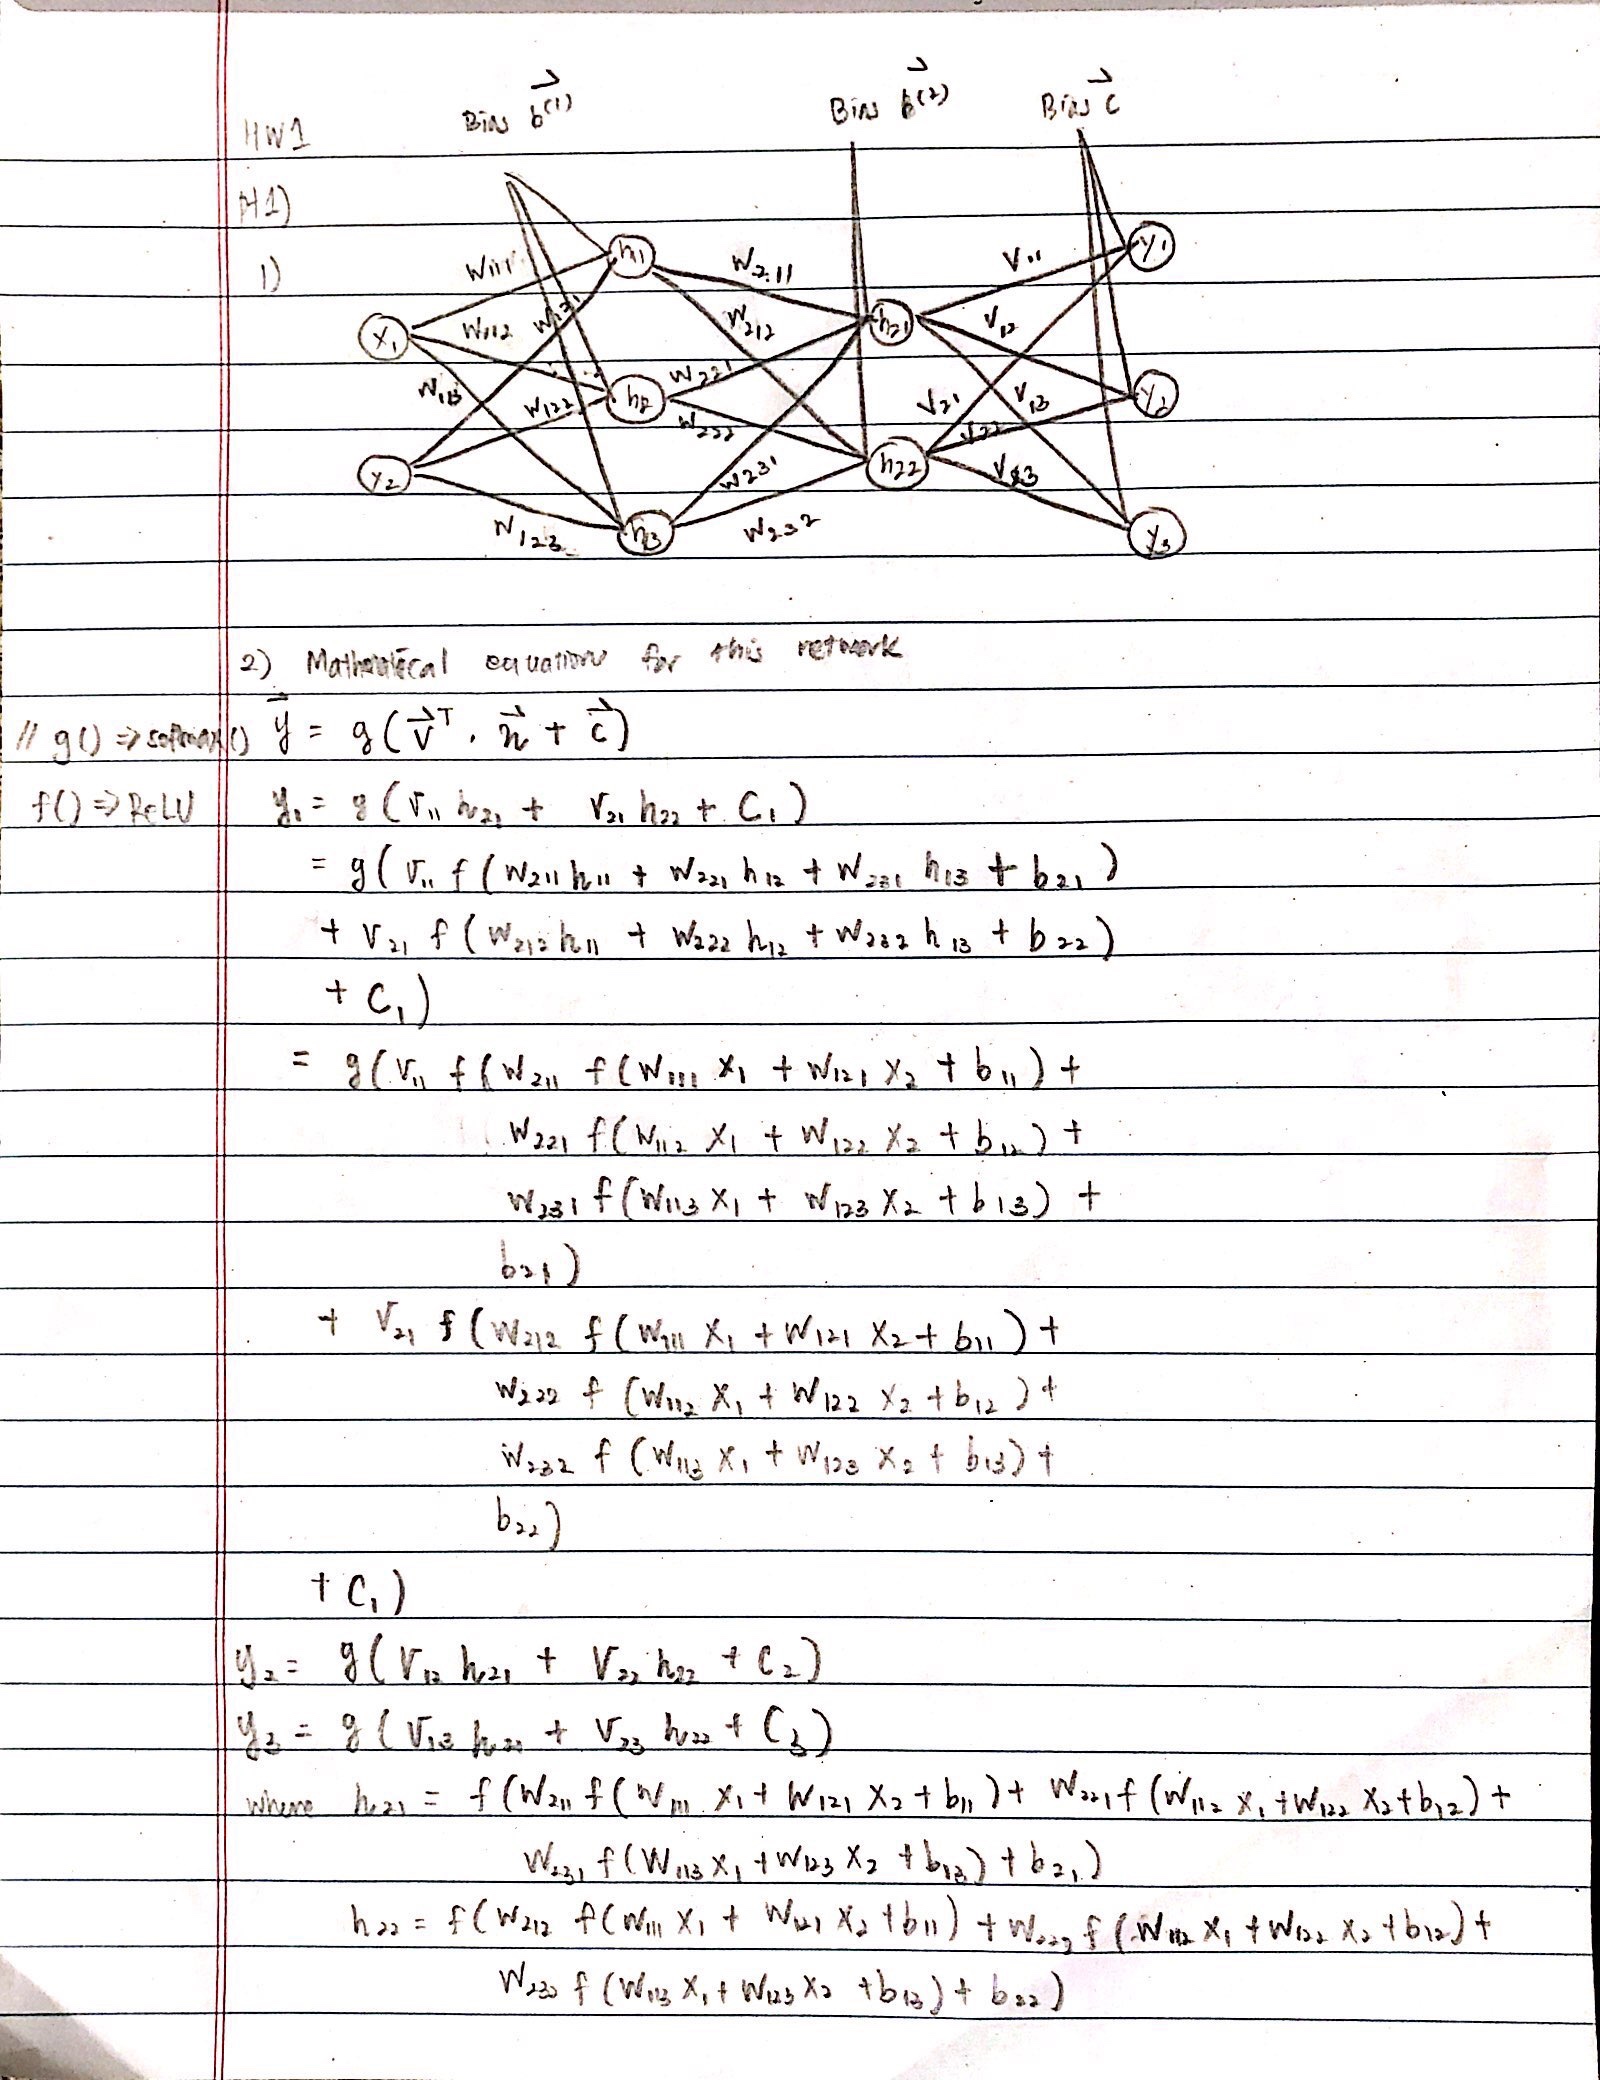 HW1
Bias b⃗⁽¹⁾ Bias b⃗⁽²⁾ Bias c⃗
H1)
1)
W₁₁₁ h₁₁ W₂₁₁ V₁₁ y₁
x₁ W₁₁₂ W₁₂₁ W₂₁₂ h₂₁ V₁₂
W₁₁₃ W₁₂₂ h₁₂ W₂₂₁ W₂₂₂ V₂₁ V₁₃ V₂₂ y₂
x₂ W₂₃₁ h₂₂ V₂₃
W₁₂₃ h₁₃ W₂₃₂ y₃
2) Mathematical equations for this network
// g() => softmax() y⃗ = g(V⃗ᵀ · h⃗ + c⃗)
f() => ReLU y₁ = g(V₁₁ h₂₁ + V₂₁ h₂₂ + C₁)
= g(V₁₁ f(W₂₁₁ h₁₁ + W₂₂₁ h₁₂ + W₂₃₁ h₁₃ + b₂₁)
+ V₂₁ f(W₂₁₂ h₁₁ + W₂₂₂ h₁₂ + W₂₃₂ h₁₃ + b₂₂)
+ C₁)
= g(V₁₁ f(W₂₁₁ f(W₁₁₁ x₁ + W₁₂₁ x₂ + b₁₁) +
W₂₂₁ f(W₁₁₂ x₁ + W₁₂₂ x₂ + b₁₂) +
W₂₃₁ f(W₁₁₃ x₁ + W₁₂₃ x₂ + b₁₃) +
b₂₁)
+ V₂₁ f(W₂₁₂ f(W₁₁₁ x₁ + W₁₂₁ x₂ + b₁₁) +
W₂₂₂ f(W₁₁₂ x₁ + W₁₂₂ x₂ + b₁₂) +
W₂₃₂ f(W₁₁₃ x₁ + W₁₂₃ x₂ + b₁₃) +
b₂₂)
+ C₁)
y₂ = g(V₁₂ h₂₁ + V₂₂ h₂₂ + C₂)
y₃ = g(V₁₃ h₂₁ + V₂₃ h₂₂ + C₃)
where h₂₁ = f(W₂₁₁ f(W₁₁₁ x₁ + W₁₂₁ x₂ + b₁₁) + W₂₂₁ f(W₁₁₂ x₁ + W₁₂₂ x₂ + b₁₂) +
W₂₃₁ f(W₁₁₃ x₁ + W₁₂₃ x₂ + b₁₃) + b₂₁)
h₂₂ = f(W₂₁₂ f(W₁₁₁ x₁ + W₁₂₁ x₂ + b₁₁) + W₂₂₂ f(W₁₁₂ x₁ + W₁₂₂ x₂ + b₁₂) +
W₂₃₂ f(W₁₁₃ x₁ + W₁₂₃ x₂ + b₁₃) + b₂₂)